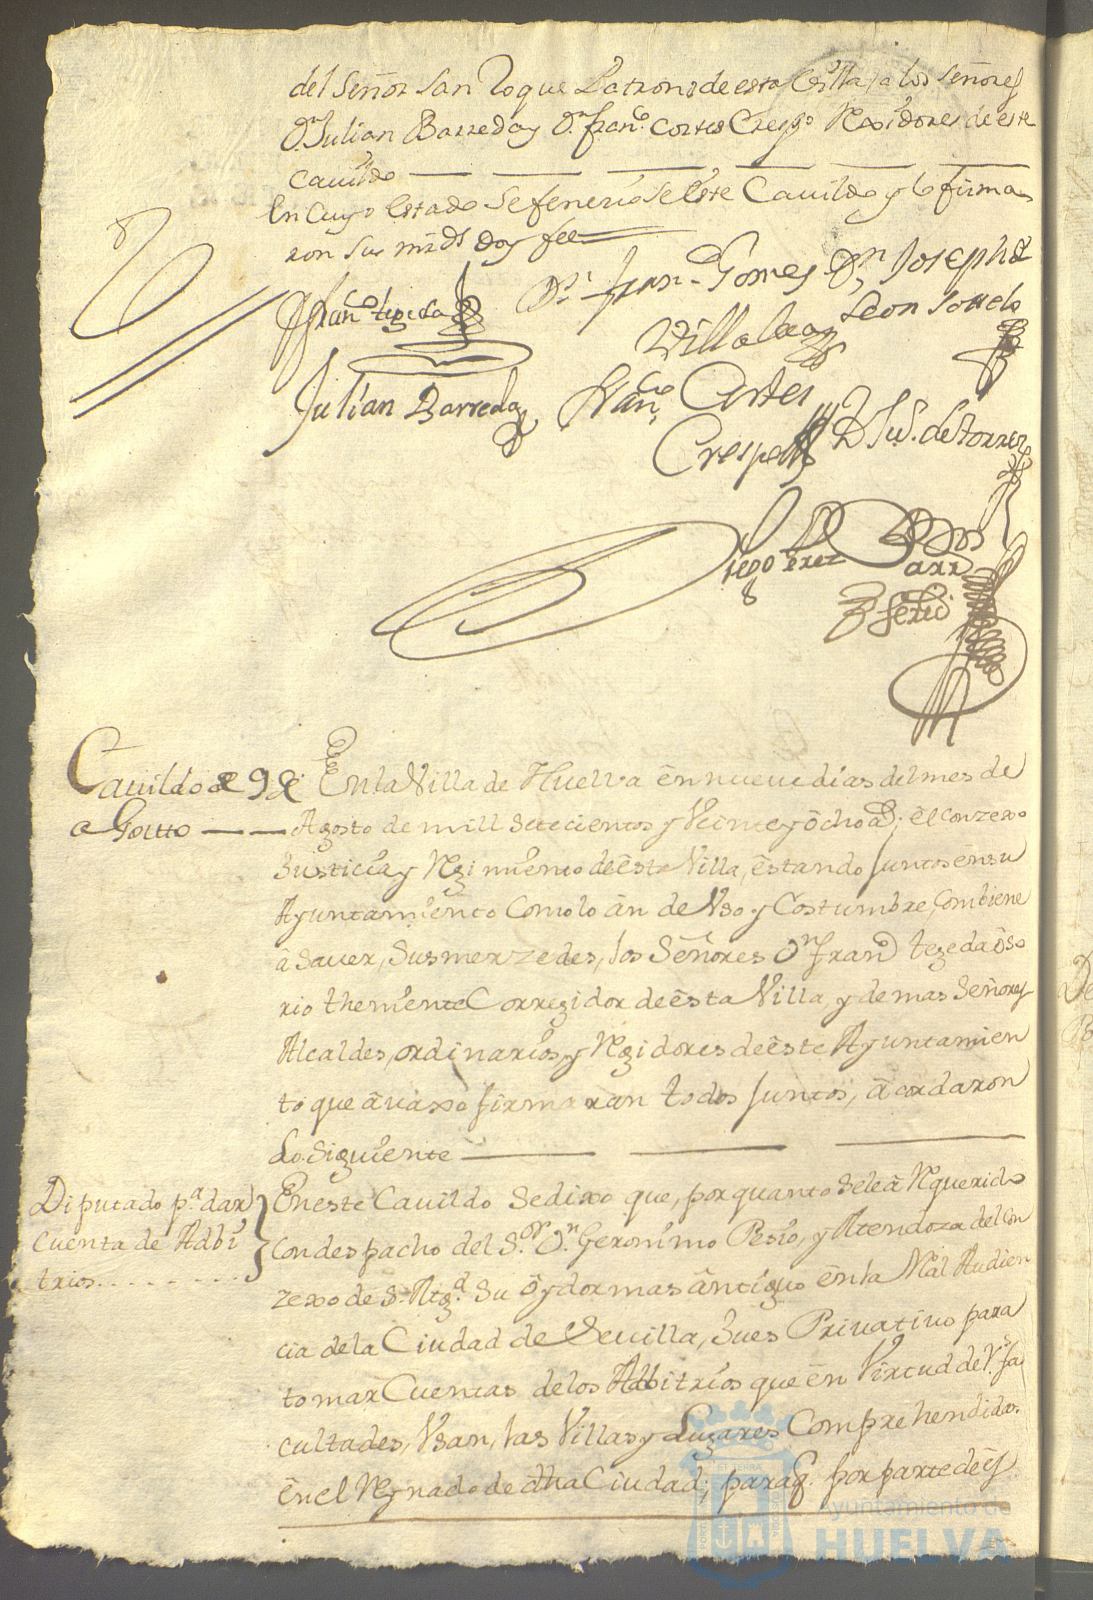 del Señor San Roque Patrono de esta Villa, a los señores
Dn. Julian Barreda y Dn. Franco. Cortes Crespo Rexidores de este
Cavildo
En Cuyo Estado Se fenezio Se Este Cavildo y lo firma
ron Sus mrds doy fee
Franco. tegeda
Dn. Fran. Gomes
Villalva
Dn. Joseph de
Leon Sottelo
Julian Barreda
Franco. Cortes
Crespo
D Ju. de Torres
Diego Perez
Cavildo de 9 de
Agostto
En la Villa de Huelva ên nueve dias del mes de
Agosto de mill Setecientos y Veinte y ôcho as. êl conzexo
Justicia y Regimiento de êsta Villa, êstando Juntos ên su
Ayuntamiento Como lo ân de Vso y Costumbre, Combiene
â Saver, Sus merzedes, los Señores Dn. Franco. tegeda ôso
rio theniente Corregidor de êsta Villa, y demas Señores
Alcaldes, ordinarios, y Regidores de êste Ayuntamien
to que âvaxo firmaran todos Juntos, âcordaron
Lo Siguiente
Diputado pa. dar
Cuenta de Adbi
trios
En este Cavildo Se dixo que, por quanto Se le â Requerido
Con despacho del Sor. Dn. Geronimo Pesio, y Mendoza del Con
zexo de S. Mgd. Su ôydor mas ântiguo ên la Rl. Audien
cia de la Ciudad de Sevilla, Jues Privativo para
tomar Cuentas de los Adbitrios que ên Virtud de Rs. fa
cultades, Vsan, las Villas y Lugares Comprehendidos
ên el Reynado de dha Ciudad; para q. por parte de ês
Ayuntamiento de
HUELVA